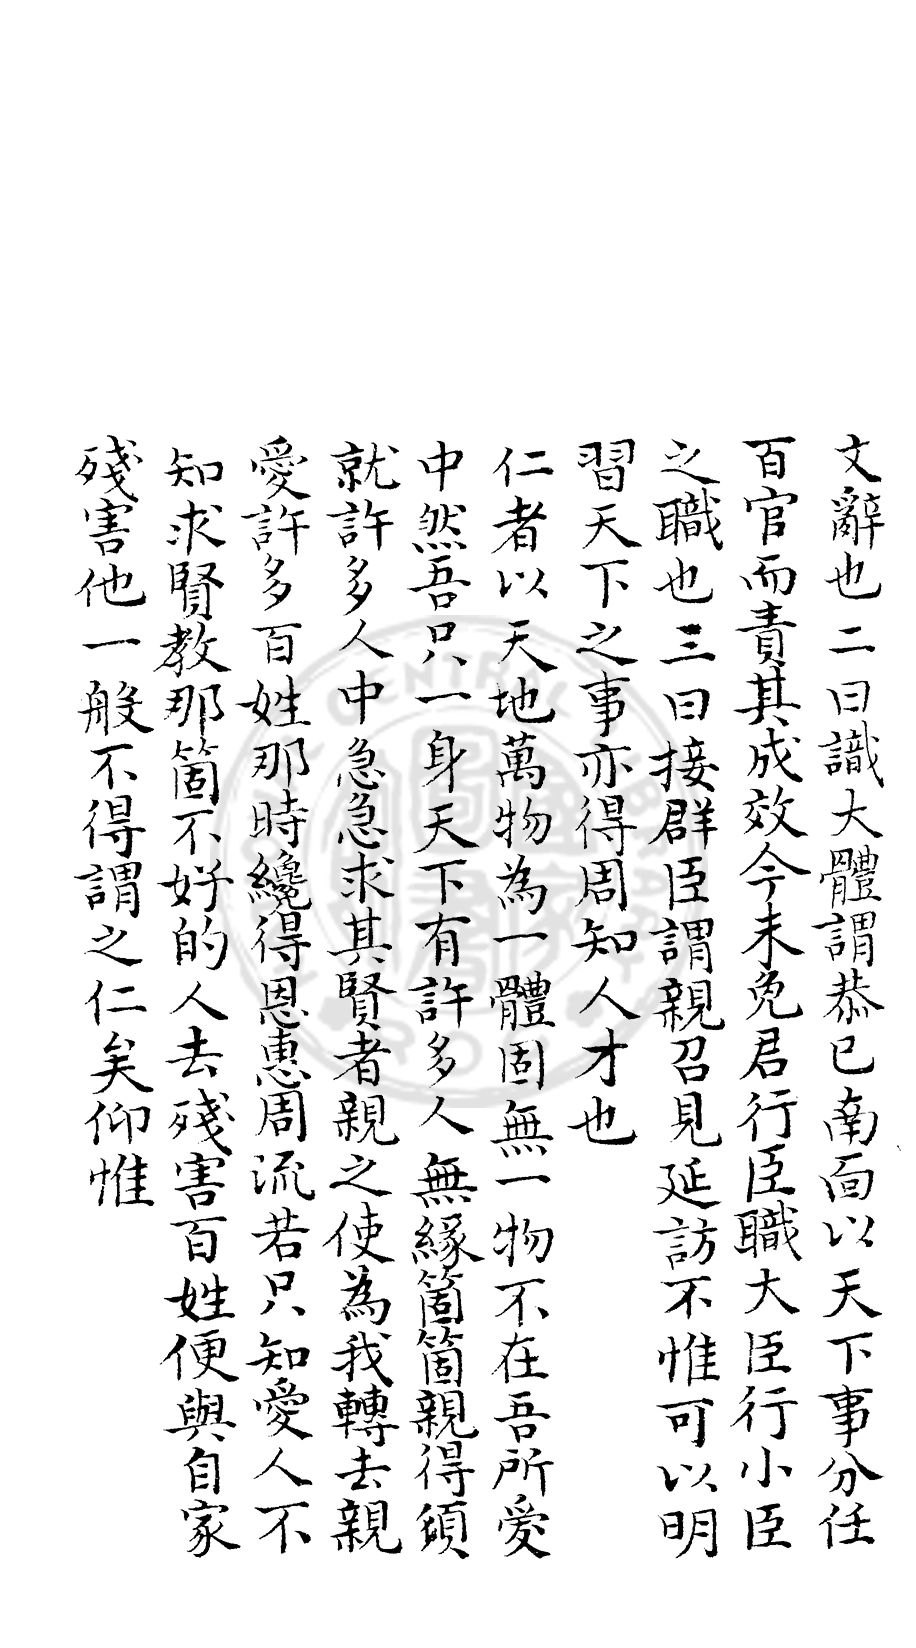 文辭也二曰識大體謂恭己南面以天下事分任
百官而責其成效今未免君行臣職大臣行小臣
之職也三曰接群臣謂親召見延訪不惟可以明
習天下之事亦得周知人才也
仁者以天地萬物為一體固無一物不在吾所愛
中然吾只一身天下有許多人無緣箇箇親得須
就許多人中急急求其賢者親之使為我轉去親
愛許多百姓那時纔得恩惠周流若只知愛人不
知求賢教那箇不好的人去殘害百姓便與自家
殘害他一般不得謂之仁矣仰惟